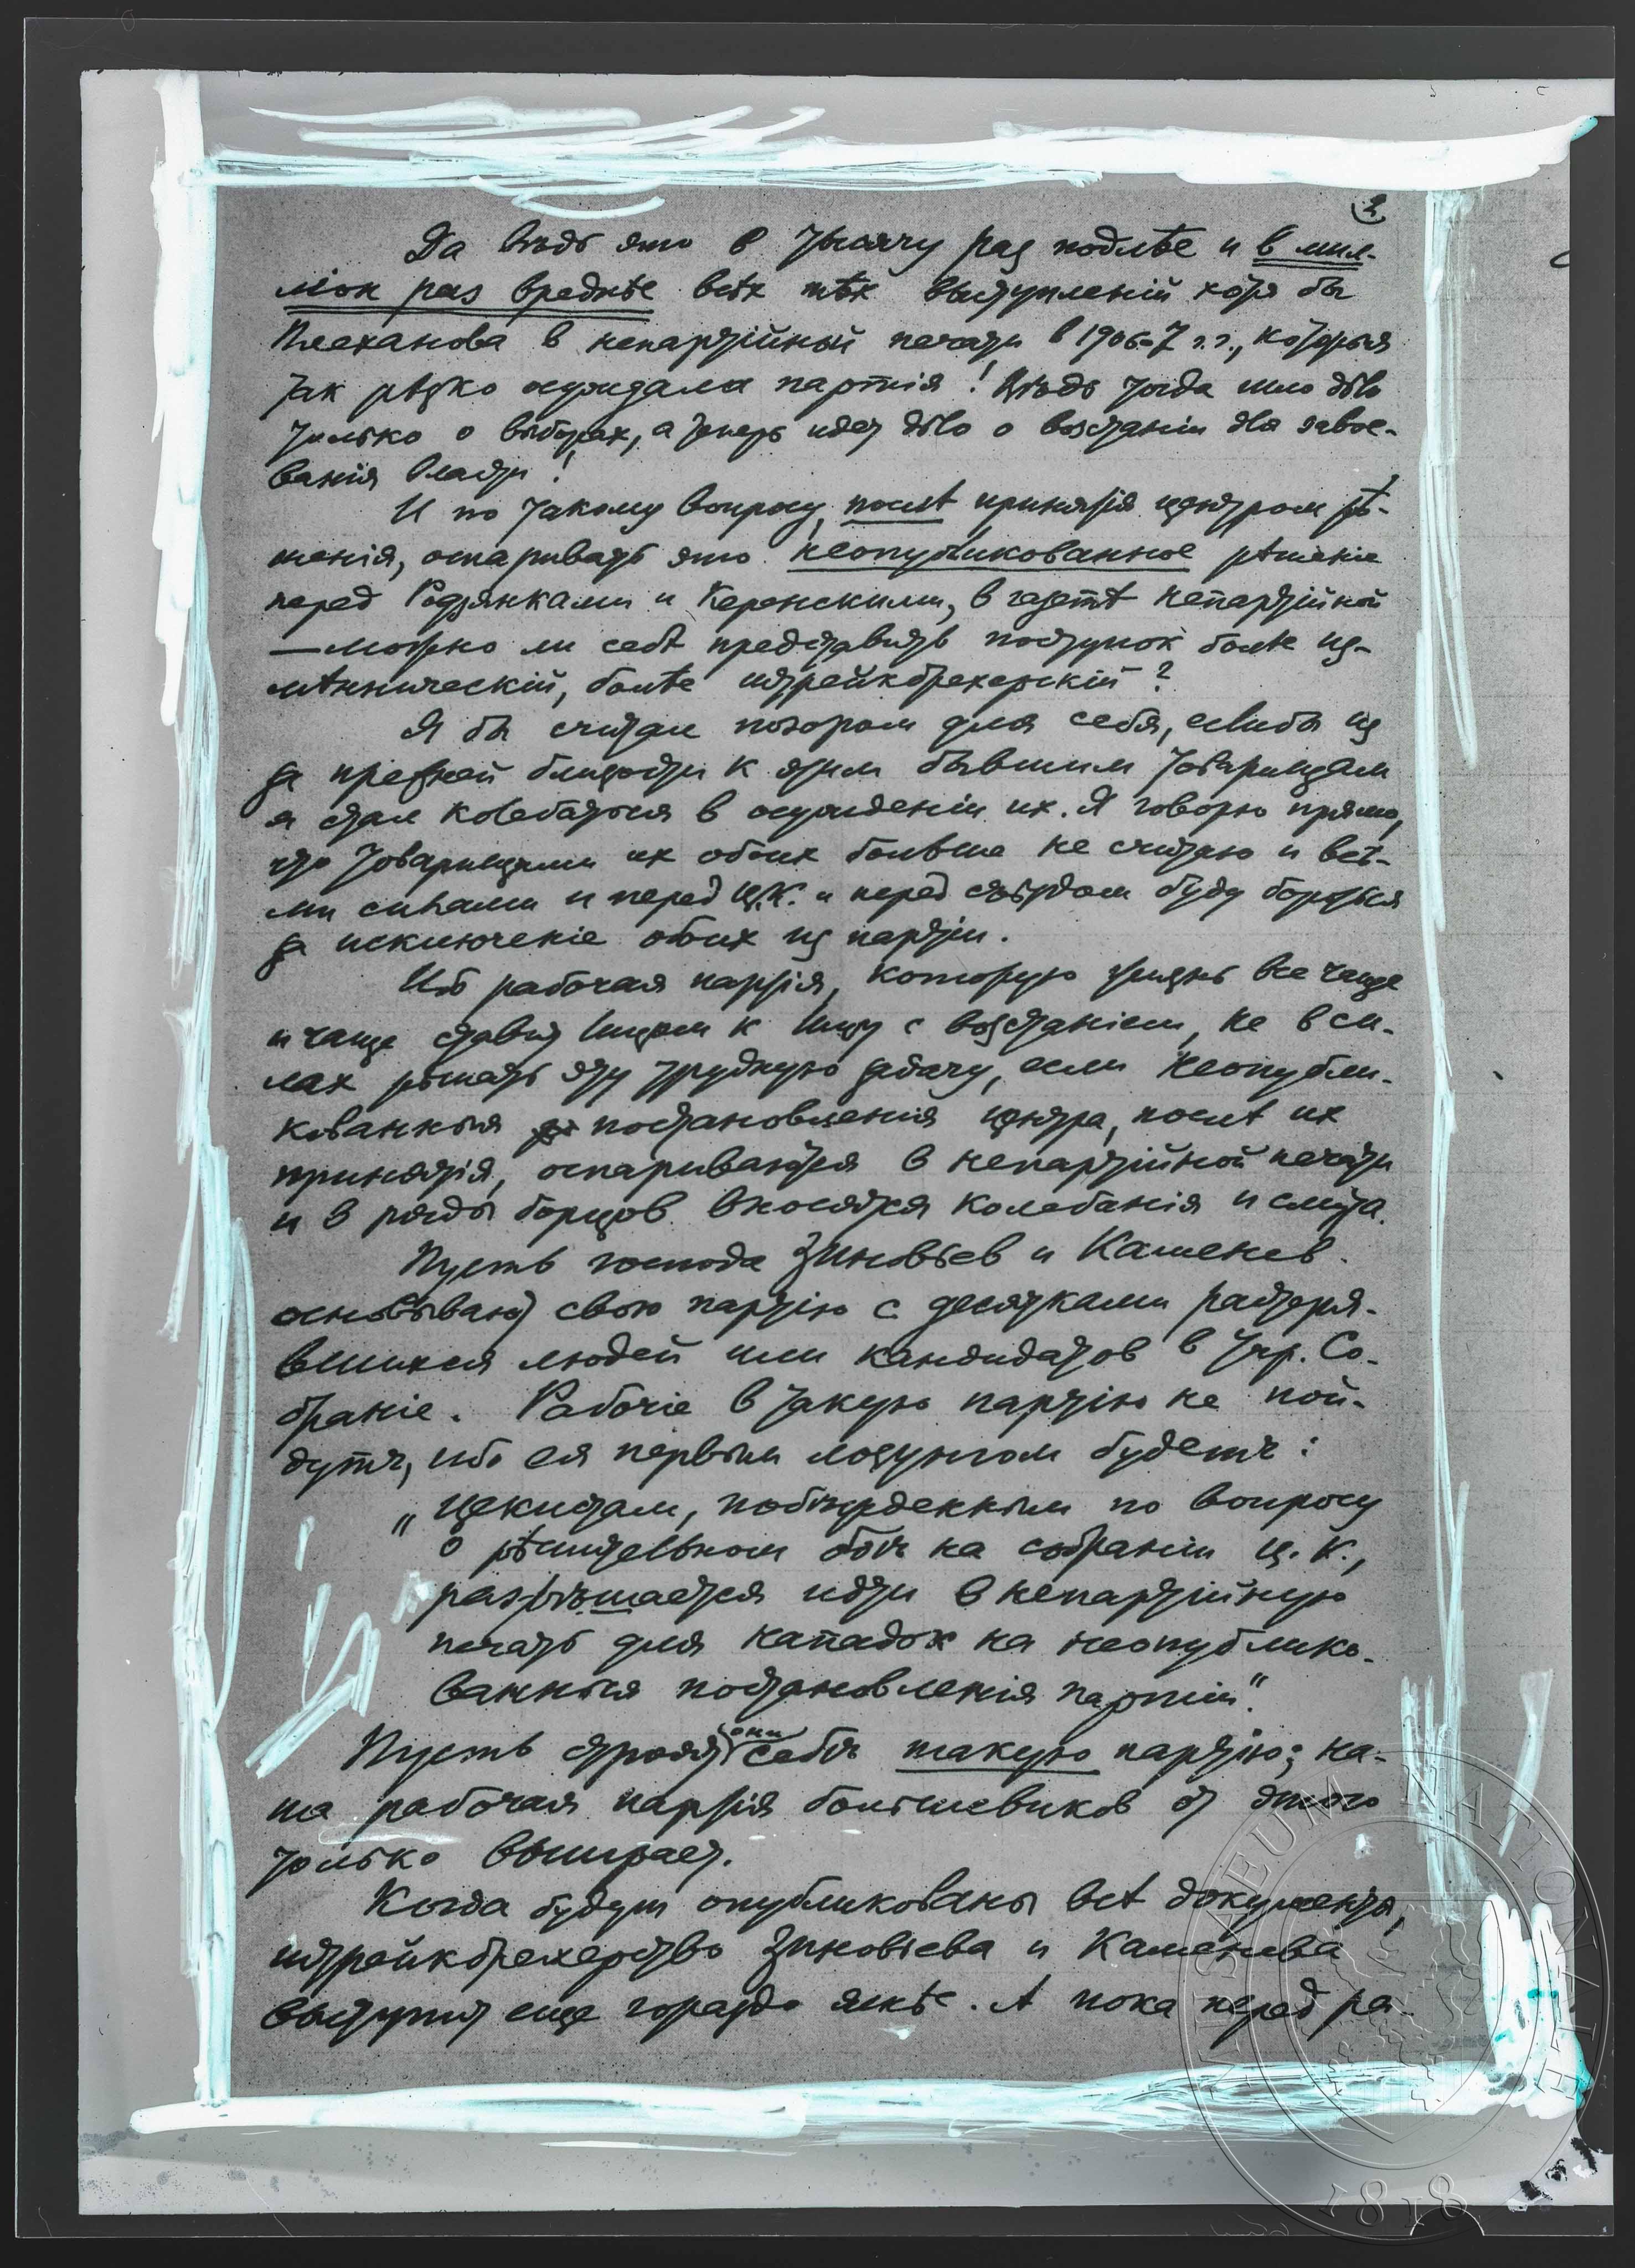 2
Да вѣдь это в тысячу раз подлѣе и в мил-
ліон раз вреднѣе всѣх тѣх выступленій хотя бы
Плеханова в непартійной печати в 1906-7 г.г., которыя
так рѣзко осуждала партія! Вѣдь тогда шло дѣло
только о выборах, а теперь идет дѣло о возстаніи для завое-
ванія власти!
И по такому вопросу, послѣ принятія центром рѣ-
шенія, оспаривать это неопубликованное рѣшеніе
перед Родзянками и Керенскими, в газетѣ непартійной
— можно ли себѣ представить поступок болѣе из-
мѣнническій, болѣе штрейкбрехерскій?
Я бы считал позором для себя, еслибы из
за прежней близости к этим бывшим товарищам
я стал колебаться в осужденіи их. Я говорю прямо,
что товарищами их обоих больше не считаю и всѣ-
ми силами и перед Ц.К. и перед съѣздом буду бороться
за исключеніе обоих из партіи.
Ибо рабочая партія, которую жизнь все чаще
и чаще ставит лицом к лицу с возстаніем, не в си-
лах рѣшать эту трудную задачу, если неопубли-
кованныя постановленія центра, послѣ их
принятія, оспариваются в непартійной печати
и в ряды борцов вносятся колебанія и смута.
Пусть господа Зиновьев и Каменев
основывают свою партію с десятками растеря-
вшихся людей или кандидатов в Учр. Со-
браніе. Рабочіе в такую партію не пой-
дутъ, ибо ея первым лозунгом будетъ:
„цекистам, побѣжденным по вопросу
о рѣшительном боѣ на собраніи Ц.К.,
разрѣшается идти в непартійную
печать для нападок на неопублико-
ванныя постановленія партіи".
они
Пусть строят себѣ такую партію; на-
ша рабочая партія большевиков от этого
только выиграет.
Когда будут опубликованы всѣ документы,
штрейкбрехерство Зиновьева и Каменева
выступит еще гораздо яснѣе. А пока перед ра-
MUSAEUM NATIONALE
1818